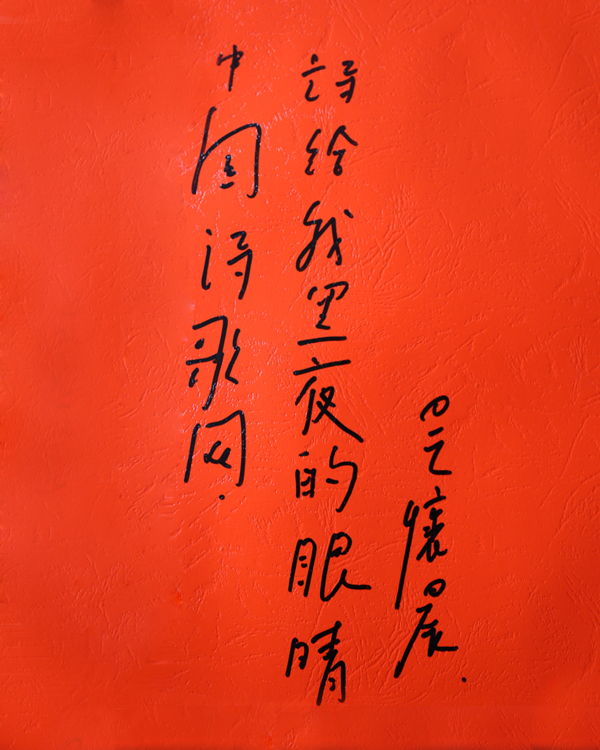 中国诗歌网.
诗给我黑夜的眼睛
吳懷晨.